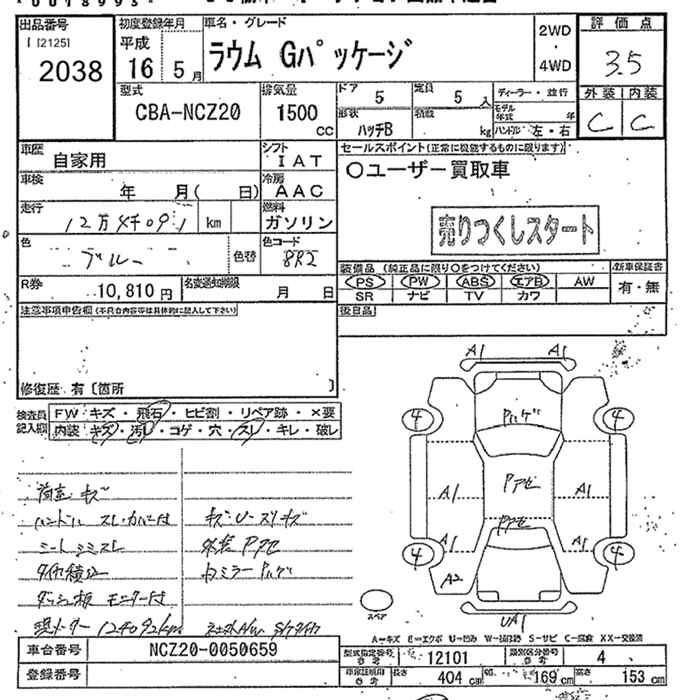 出品番号
2038
初度登録年月
平成
16 5月
車名・グレード
ラウム Gパッケージ
2WD
・
4WD
評価点
3.5
外装 内装
C C
型式
CBA-NCZ20
排気量
1500
cc
ドア
5
定員
5 人
形状
ハッチB
積載
kg
ディーラー・並行
モデル年式 年
ハンドル 左・右
車歴
自家用
シフト
IAT
車検
年 月( 日)
冷房
AAC
走行
12万4千09,1 km
燃料
ガソリン
色
ブルー
色替
色コード
8R2
R券
10,810 円
名変通知期限
月 日
セールスポイント(正常に機能するものに限ります)
○ユーザー買取車
売りつくしスタート
装備品(純正品に限り○をつけてください)
新車保証書
PS PW ABS エアB AW
SR ナビ TV カワ
有・無
後日品
注意事項申告欄(不具合内容等は具体的に記入して下さい)
修復歴 有〔箇所 〕
検査員記入欄
FW キズ・飛石・ヒビ割・リペア跡・×要
内装 キズ・汚レ・コゲ・穴・スレ・キレ・破レ
荷室 キズ
ハンドル スレ・カバー付
シートシミスレ
ダッシュ板 モニター付
現メーター 124092km
キズ・U・スリキズ
外装 Pアセ
A1 A1
Pハゲ
4 4
Pアセ
A1 A1
Pアセ
A1 A1
4 4
A2
UA1
スペア
A=キズ E=エクボ U=凹み W=補修跡 S=サビ C=腐食 XX=交換済
車台番号
NCZ20-0050659
登録番号
型式指定番号 参考
12101
類別区分番号 参考
4
車庫証明用 参考
長さ 404 cm 幅 169 cm 高さ 153 cm